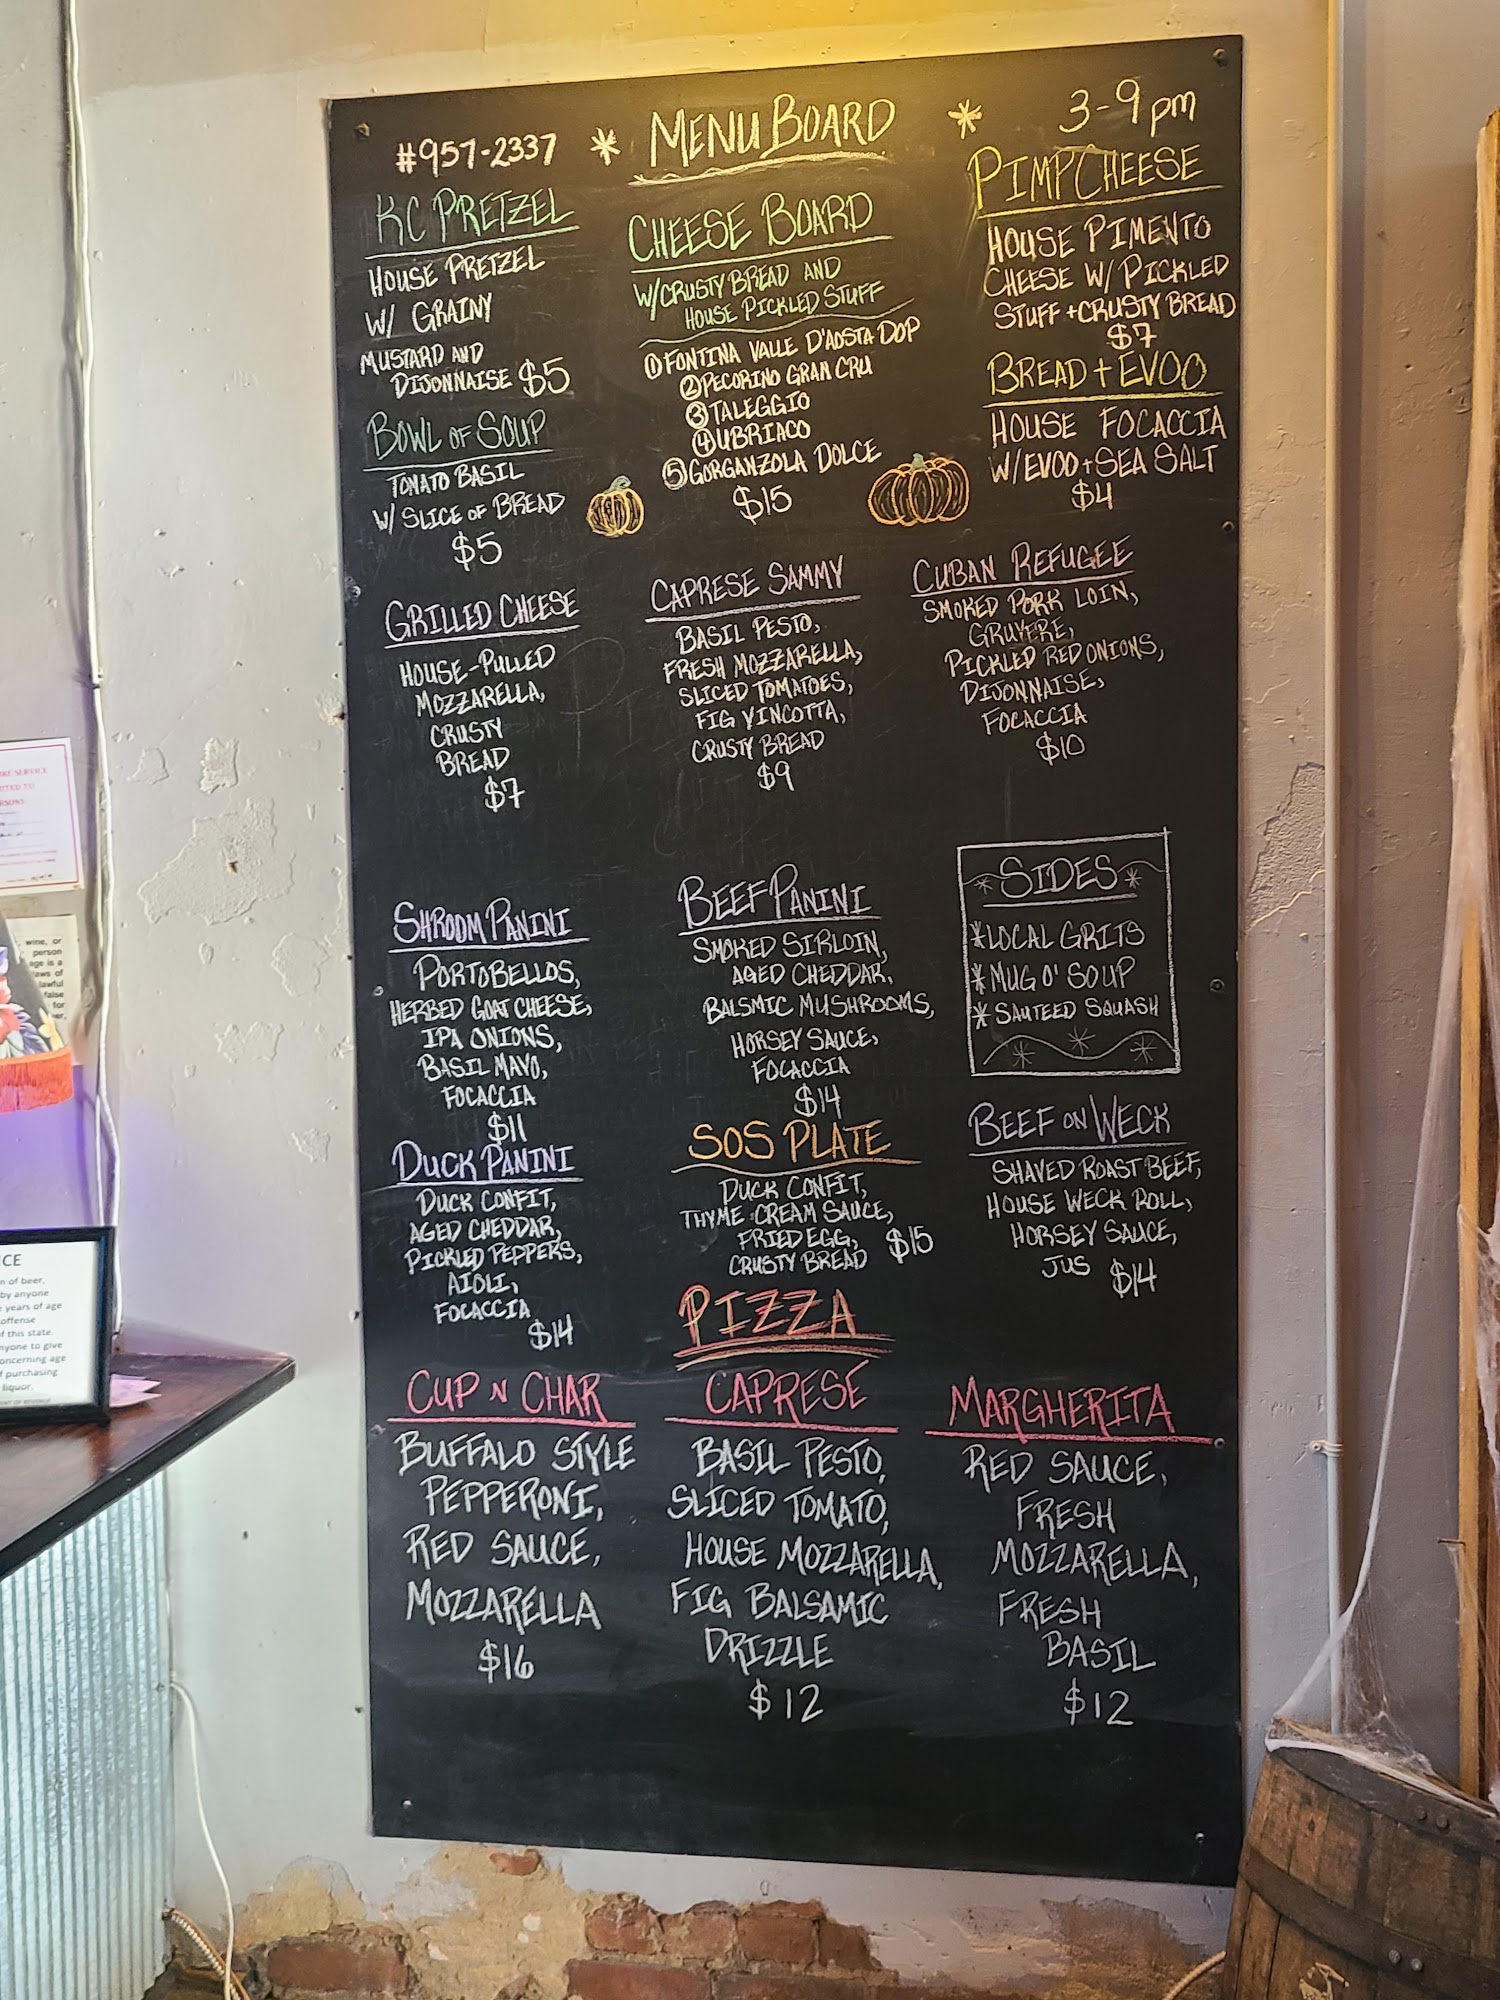 #957-2337 * MENU BOARD * 3-9pm
KC PRETZEL
HOUSE PRETZEL
W/ GRAINY
MUSTARD AND
DIJONNAISE $5
BOWL OF SOUP
TOMATO BASIL
W/ SLICE OF BREAD
$5
CHEESE BOARD
W/CRUSTY BREAD AND
HOUSE PICKLED STUFF
① FONTINA VALLE D'AOSTA DOP
② PECORINO GRAN CRU
③ TALEGGIO
④ UBRIACO
⑤ GORGANZOLA DOLCE
$15
PIMPCHEESE
HOUSE PIMENTO
CHEESE W/ PICKLED
STUFF + CRUSTY BREAD
$7
BREAD + EVOO
HOUSE FOCACCIA
W/EVOO + SEA SALT
$4
GRILLED CHEESE
HOUSE-PULLED
MOZZARELLA,
CRUSTY
BREAD
$7
CAPRESE SAMMY
BASIL PESTO,
FRESH MOZZARELLA,
SLICED TOMATOES,
FIG VINCOTTA,
CRUSTY BREAD
$9
CUBAN REFUGEE
SMOKED PORK LOIN,
GRUYERE,
PICKLED RED ONIONS,
DIJONNAISE,
FOCACCIA
$10
SHROOM PANINI
PORTOBELLOS,
HERBED GOAT CHEESE,
IPA ONIONS,
BASIL MAYO,
FOCACCIA
$11
BEEF PANINI
SMOKED SIRLOIN,
AGED CHEDDAR,
BALSMIC MUSHROOMS,
HORSEY SAUCE,
FOCACCIA
$14
* SIDES *
* LOCAL GRITS
* MUG O' SOUP
* SAUTEED SQUASH
DUCK PANINI
DUCK CONFIT,
AGED CHEDDAR,
PICKLED PEPPERS,
AIOLI,
FOCACCIA
$14
SOS PLATE
DUCK CONFIT,
THYME CREAM SAUCE,
FRIED EGG,
CRUSTY BREAD $15
BEEF ON WECK
SHAVED ROAST BEEF,
HOUSE WECK ROLL,
HORSEY SAUCE,
JUS $14
PIZZA
CUP N CHAR
BUFFALO STYLE
PEPPERONI,
RED SAUCE,
MOZZARELLA
$16
CAPRESE
BASIL PESTO,
SLICED TOMATO,
HOUSE MOZZARELLA,
FIG BALSAMIC
DRIZZLE
$12
MARGHERITA
RED SAUCE,
FRESH
MOZZARELLA,
FRESH
BASIL
$12
wine, or
person
age is a
laws of
lawful
false
for
of beer,
by anyone
years of age
offense
this state.
to give
age
purchasing
liquor.